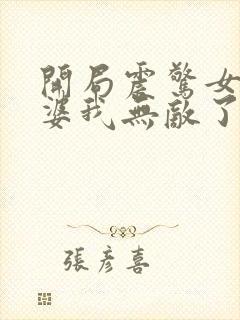 開局震驚女
婆我無敵了
張彦喜